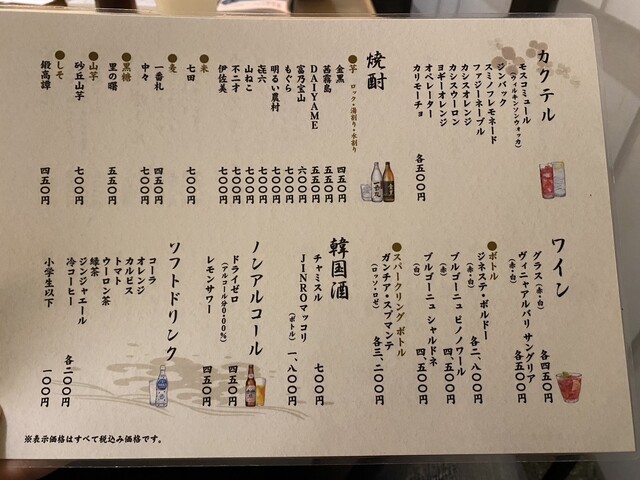 カクテル
モスコミュール
(ウィルキンソンウォッカ)
ジンバック
スミノフレモネード
ファジーネーブル
カシスオレンジ
カシスウーロン
ヨギーオレンジ
オペレーター
カリモーチョ
各五〇〇円
焼酎
●芋 ロック・湯割り・水割り
金黒 四五〇円
茜霧島 五五〇円
DAIYAME 五五〇円
富乃宝山 六〇〇円
もぐら 七〇〇円
明るい農村 七〇〇円
㐂六 七〇〇円
山ねこ 七〇〇円
不二才 七〇〇円
伊佐美 七〇〇円
●米
七田 七〇〇円
●麦
一番札 四五〇円
中々 七〇〇円
●黒糖
里の曙 五五〇円
●山芋
砂丘山芋 七〇〇円
●しそ
鍛高譚 四五〇円
ワイン
グラス(赤・白) 各四五〇円
ヴィニャアルバリ サングリア
(赤・白) 各五〇〇円
●ボトル
ジネステ・ボルドー
(赤・白) 各二、八〇〇円
ブルゴーニュ ピノノワール
(赤) 四、五〇〇円
ブルゴーニュ シャルドネ
(白) 四、五〇〇円
●スパークリング ボトル
ガンチア・スプマンテ
(ロッソ・ロゼ) 各三、二〇〇円
韓国酒
チャミスル 七〇〇円
JINROマッコリ
(ボトル) 一、八〇〇円
ノンアルコール
ドライゼロ
(アルコール分0.00%) 四五〇円
レモンサワー 四五〇円
ソフトドリンク
コーラ
オレンジ
カルピス
トマト
ウーロン茶
緑茶
ジンジャエール
冷コーヒー
各二〇〇円
小学生以下 一〇〇円
※表示価格はすべて税込み価格です。